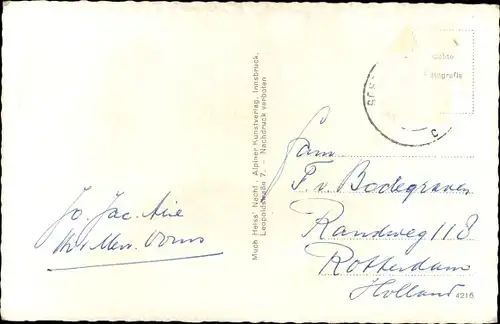 Jo. Jac. Mie
Much Heiss' Nachf., Alpiner Kunstverlag, Innsbruck,
Leopoldstraße 7. - Nachdruck verboten
Echte
Fotografie
Fam
F. v. Bodegraven
Randweg 118
Rotterdam
Holland
4216